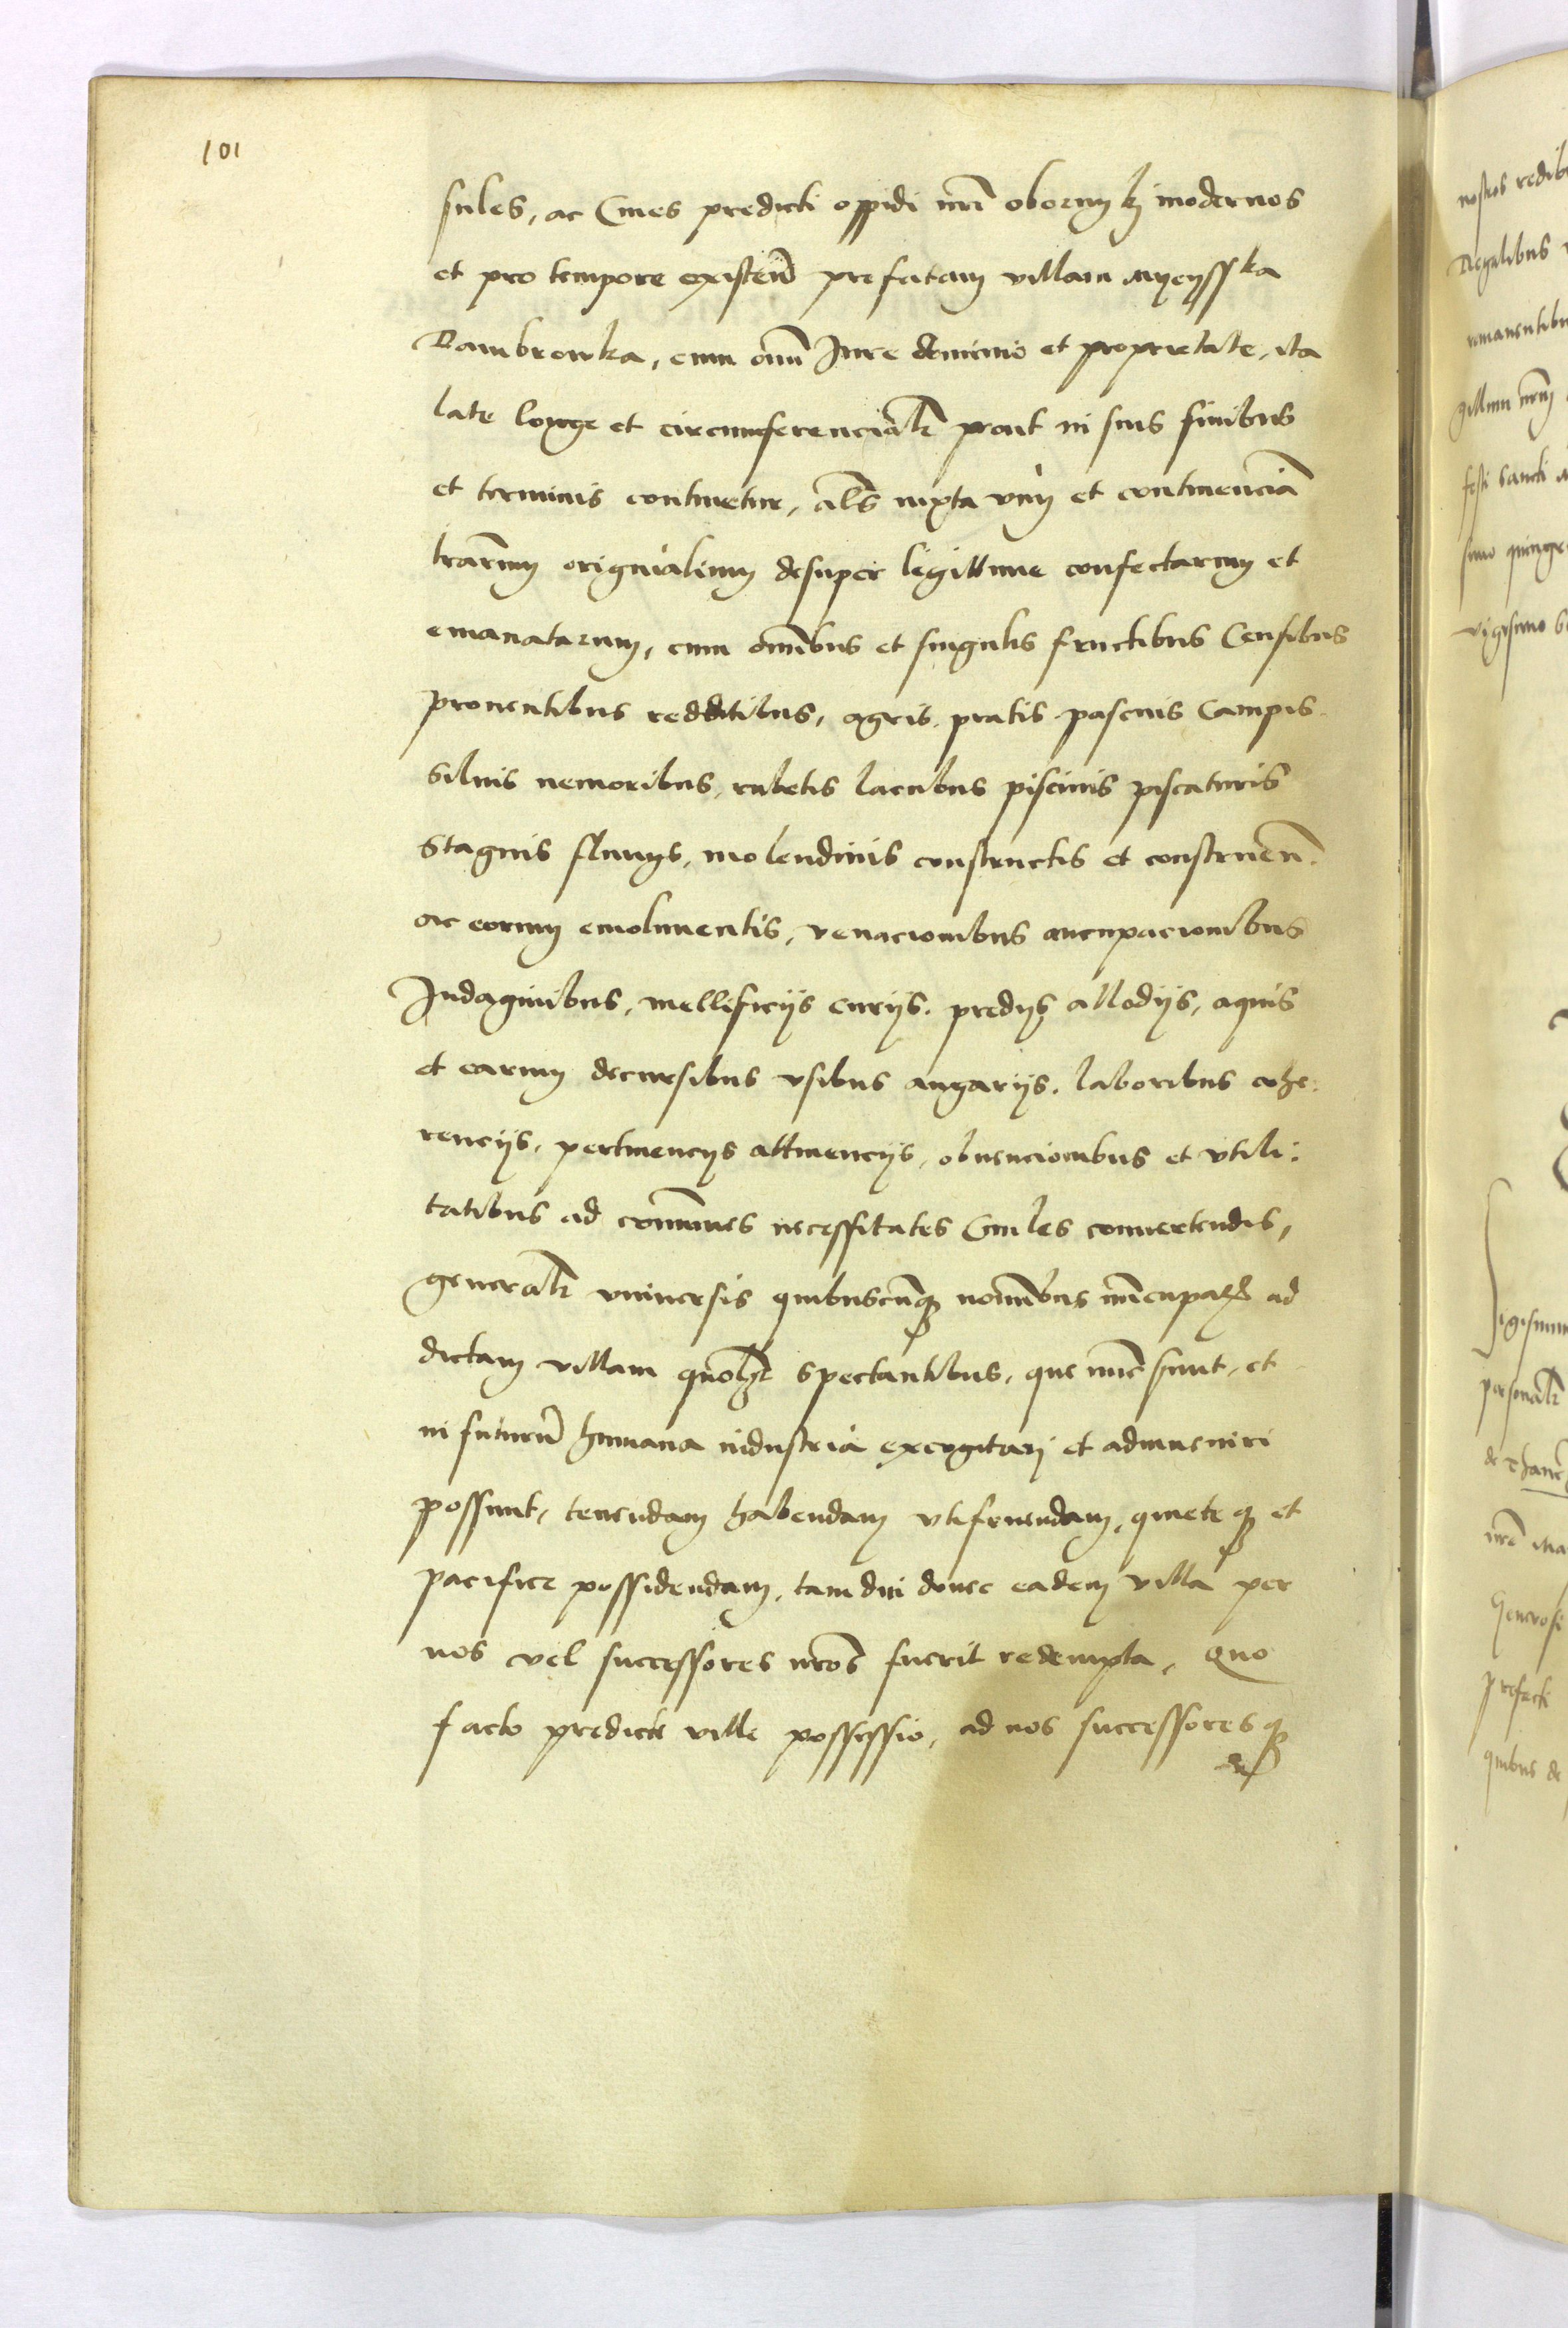 101
sules, ac Ciues predicti oppidi nrĩ obornyky modernos
et pro tempore existeñ prefatam villam Myeysska
Dambrowka, cum oĩm Iure dominio et proprietate, ita
late longe et circumferencialr̃ prout in suis finibus
et terminis continetur, als̃ iuxta vim et continenciã
lrãrum originalium desuper legittime confectarum et
emanatarum, cum oĩmbus et singulis fructibus Censibus
prouentibus redditibus, agris. pratis pascuis Campis.
Siluis nemoribus, rubetis lacubus piscinis piscaturis
Stagnis fluuys, molendinis constructis et construeñ.
ac eorum emolumentis, venacionibus aucupacionibus
Indaginibus, mellificijs curijs. predijs allodijs, aquis
et earum decursibus vsibus angarijs. laboribus cohe:
rencijs, pertinencys attinencijs, obuencionibus et vtili:
tatibus ad com̃unes necessitates Ciuiles conuertendis,
generalr̃ vniuersis quibuscunq nomĩbus nũcupatis ad
dictam villam quolz̃ spectantibus, que nũc sunt, et
in futurũ humana industria excogitari et adinueniri
possunt, tenendam habendam vtifruendam, quiete q et
pacifice possidendam, tam diu donec eadem villa per
nos vel successores nros̃ fuerit redempta, Quo
facto predicte ville possessio, ad nos successores q
nostros redib
Regalibus
remanentibus
gillum nrm̃
festi sancti
simo quinge
vigesimo
Sigismun
personalr̃
de
nrẽ
Generosi
prefecti
quibus de